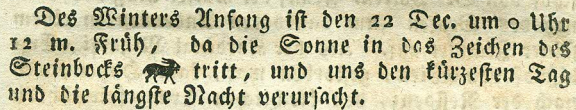 Des Winters Anfang iſt den 22 Dec. um 0 Uhr
12 m. Früh, da die Sonne in das Zeichen des
Steinbocks tritt, und uns den kürzeſten Tag
und die längſte Nacht verurſacht.